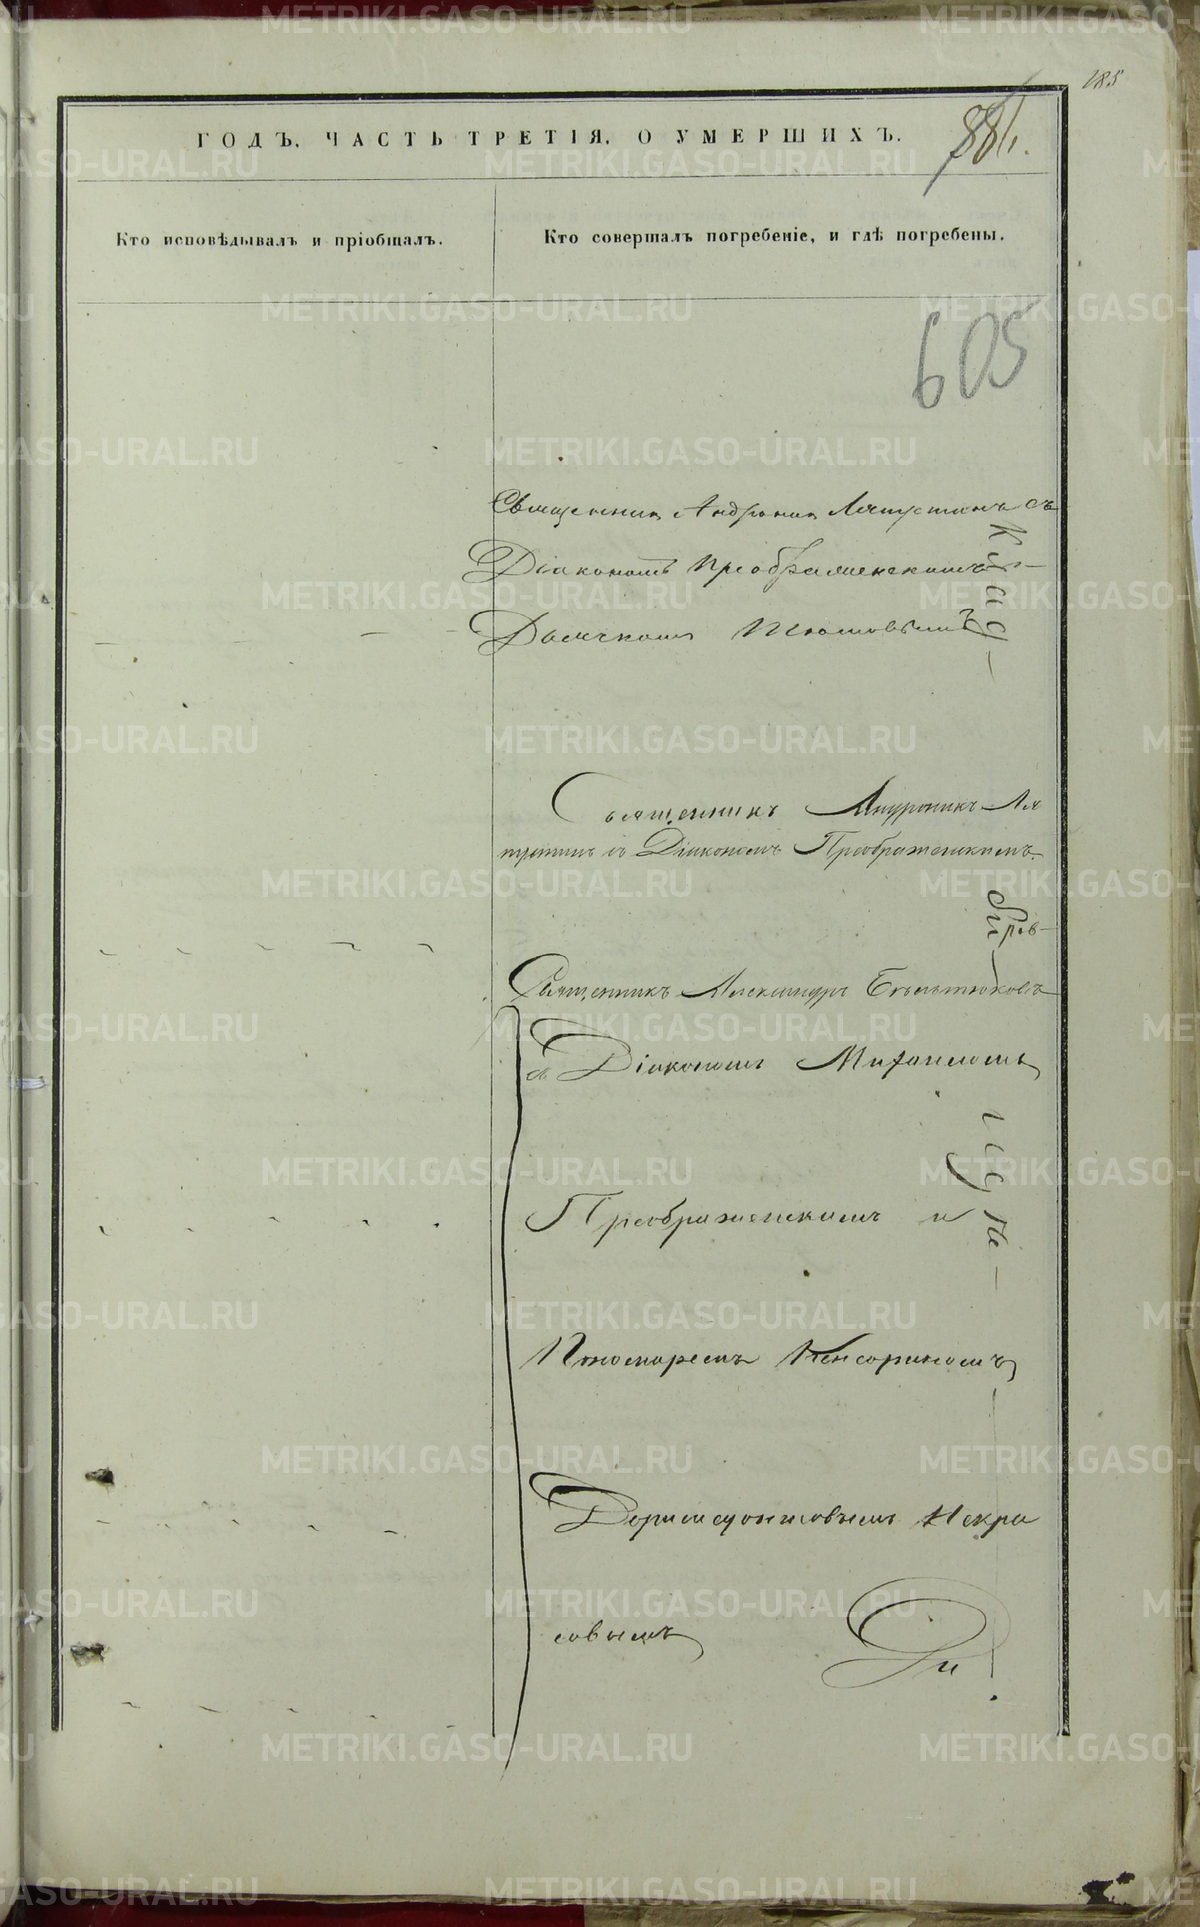 185
ГОДЪ. ЧАСТЬ ТРЕТІЯ. О УМЕРШИХЪ.
Кто исповѣдывалъ и пріобщалъ.
Кто совершалъ погребеніе, и гдѣ погребены.
605
Священник Андроник Ляпустинъ съ
Діакономъ Преображенскимъ
Дьячкомъ
Священникъ Андроникъ Ля
пустинъ съ Діакономъ Преображенскимъ.
Священникъ Александръ Бѣльтюковъ
съ Діакономъ Михаиломъ
Преображенскимъ и
Пономаремъ Кенсориномъ
Дормедонтовымъ Некра
совымъ
METRIKI.GASO-URAL.RU